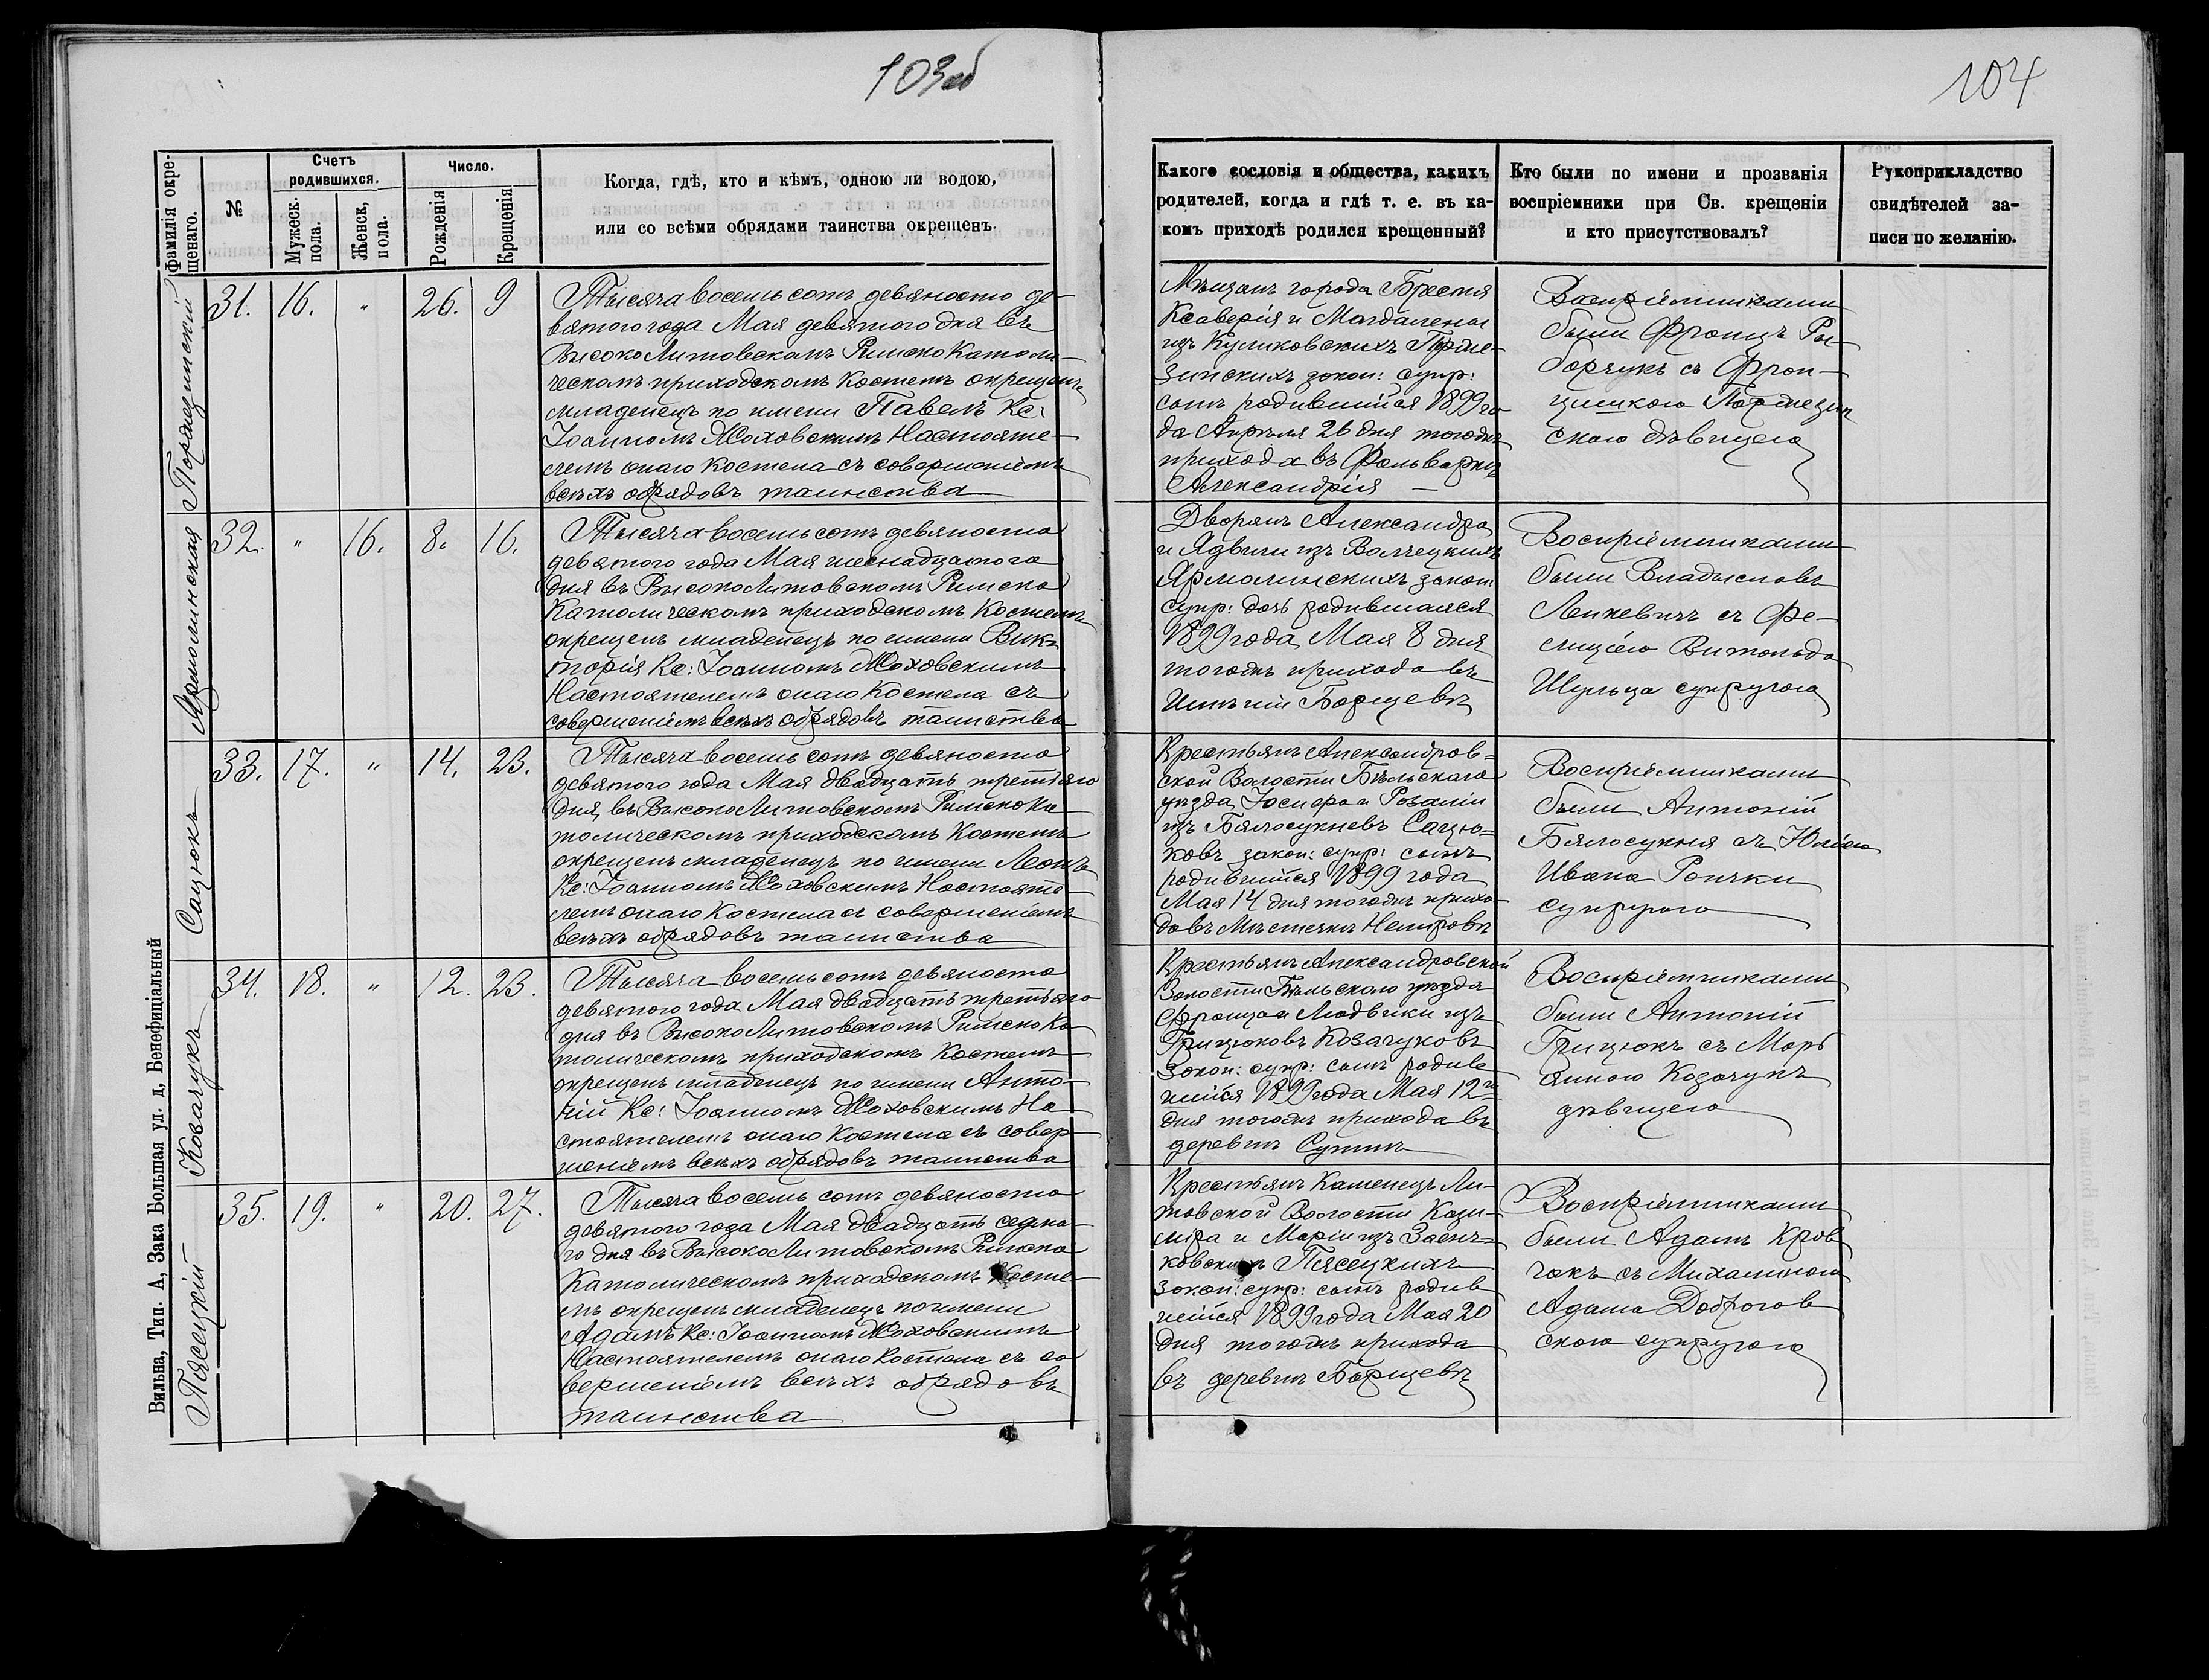 103об
104
фамилія окре-
щенаго.
№
Счетъ
родившихся.
Мужеск.
пола.
Женск,
пола.
Число.
Рожденія
Крещенія
Когда, гдѣ, кто и кѣмъ, одною ли водою,
или со всѣми обрядами таинства окрещенъ.
Какого сословія и общества, какихъ
родителей, когда и гдѣ т. е. въ ка-
комъ приходѣ родился крещенный?
Кто были по имени и прозванія
воспріемники при Св. крещеніи
и кто присутствовалъ?
Рукоприкладство
свидѣтелей за-
писи по желанію.
31. 16. " 26. 9
Тысяча восемь сотъ девяносто де-
вятого года Мая девятого дня въ
Високо Литовскомъ Римско Католи-
ческомъ приходскомъ Костелѣ окрещенъ
младенецъ по имени Павелъ Кс:
Іоанномъ Жоховскимъ Настояте-
лемъ онаго Костела съ совершеніемъ
всѣхъ обрядовъ таинства
Мѣщанъ города Бреста
Ксаверія и Магдалены
изъ Куликовскихъ
зинскихъ закон: супр:
сынъ родившійся 1899 го-
да Апрѣля 26 дня тогожъ
прихода въ Фольваркѣ
Александрія
Воспріемниками
были Францъ Ры-
борчукъ съ Фран-
цишкою
скою дѣвицею
Ярмолинская
32. " 16. 8. 16.
Тысяча восемь сотъ девяносто
девятого года Мая шеснадцатого
дня въ Високо Литовскомъ Римско
Католическомъ приходскомъ Костелѣ
окрещенъ младенецъ по имени Вик-
торія Кс: Іоанномъ Жоховскимъ
Настоятелемъ онаго Костела съ
совершеніемъ всѣхъ обрядовъ таинства
Дворянъ Александра
и Ядвиги изъ Волчецкихъ
Ярмолинскихъ закон
супр: дочь родившаяся
1899 года Мая 8 дня
тогожъ прихода въ
Имѣніи Борщевѣ
Воспріемниками
были Владиславъ
Ленкевичъ съ Фе-
лиціею Витольда
Шульца супругою
Сацюкъ
33. 17. " 14. 23.
Тысяча восемь сотъ девяносто
девятого года Мая двадцать третьяго
дня, въ Високо Литовскомъ Римско Ка
толическомъ приходскомъ Костелѣ
окрещенъ младенецъ по имени Леонъ
Кс: Іоанномъ Жоховскимъ Настояте-
лемъ онаго Костела съ совершеніемъ
всѣхъ обрядовъ таинства
Крестьянъ Александров-
ской Волости Бѣльскаго
уѣзда, Іосифа и Розаліи
изъ Бялосукневъ Сацю-
ковъ закон: супр: сынъ
родившійся 1899 года
Мая 14 дня тогожъ прихо-
да въ Мѣстечкѣ Немировѣ
Воспріемниками
были Антоній
Бялосукня съ Юліею
Ивана
супругою
Козачукъ
34. 18. " 12. 23.
Тысяча восемь сотъ девяносто
девятого года Мая двадцать третьяго
дня въ Високо Литовскомъ Римско Ка
толическомъ приходскомъ Костелѣ
окрещенъ младенецъ по имени Анто-
ній Кс: Іоанномъ Жоховскимъ На
стоятелемъ онаго Костела съ совер
шеніемъ всѣхъ обрядовъ таинства
Крестьянъ Александровской
Волости Бѣльскаго уѣзда
Франца и Людвики изъ
Грицюковъ Козачуковъ
закон: супр: сынъ родив
шійся 1899 года Мая 12го
дня тогожъ прихода въ
деревнѣ
Воспріемниками
были Антоній
Грицюкъ съ Марь
янною Козачукъ
дѣвицею
Пясецкій
35. 19. " 20. 27.
Тысяча восемь сотъ девяносто
девятого года Мая двадцать седмо-
го дня въ Високо Литовскомъ Римско
Католическомъ приходскомъ Косте-
лѣ окрещенъ младенецъ по имени
Адамъ Кс: Іоанномъ Жоховскимъ
Настоятелемъ онаго Костела съ со
вершеніемъ всѣхъ обрядовъ
таинства
Крестьянъ Каменецъ Ли-
товской Волости Кази-
міра и Маріи изъ
Пясецкихъ
закон: супр: сынъ родив
шійся 1899 года Мая 20
дня тогожъ прихода
въ деревнѣ Борщевѣ
Воспріемниками
были Адамъ Крав
чокъ съ Михалиною
Адама Доброгов
скою супругою
Вильна, Тип. А, Зака Большая ул. д, Бенефиціальный